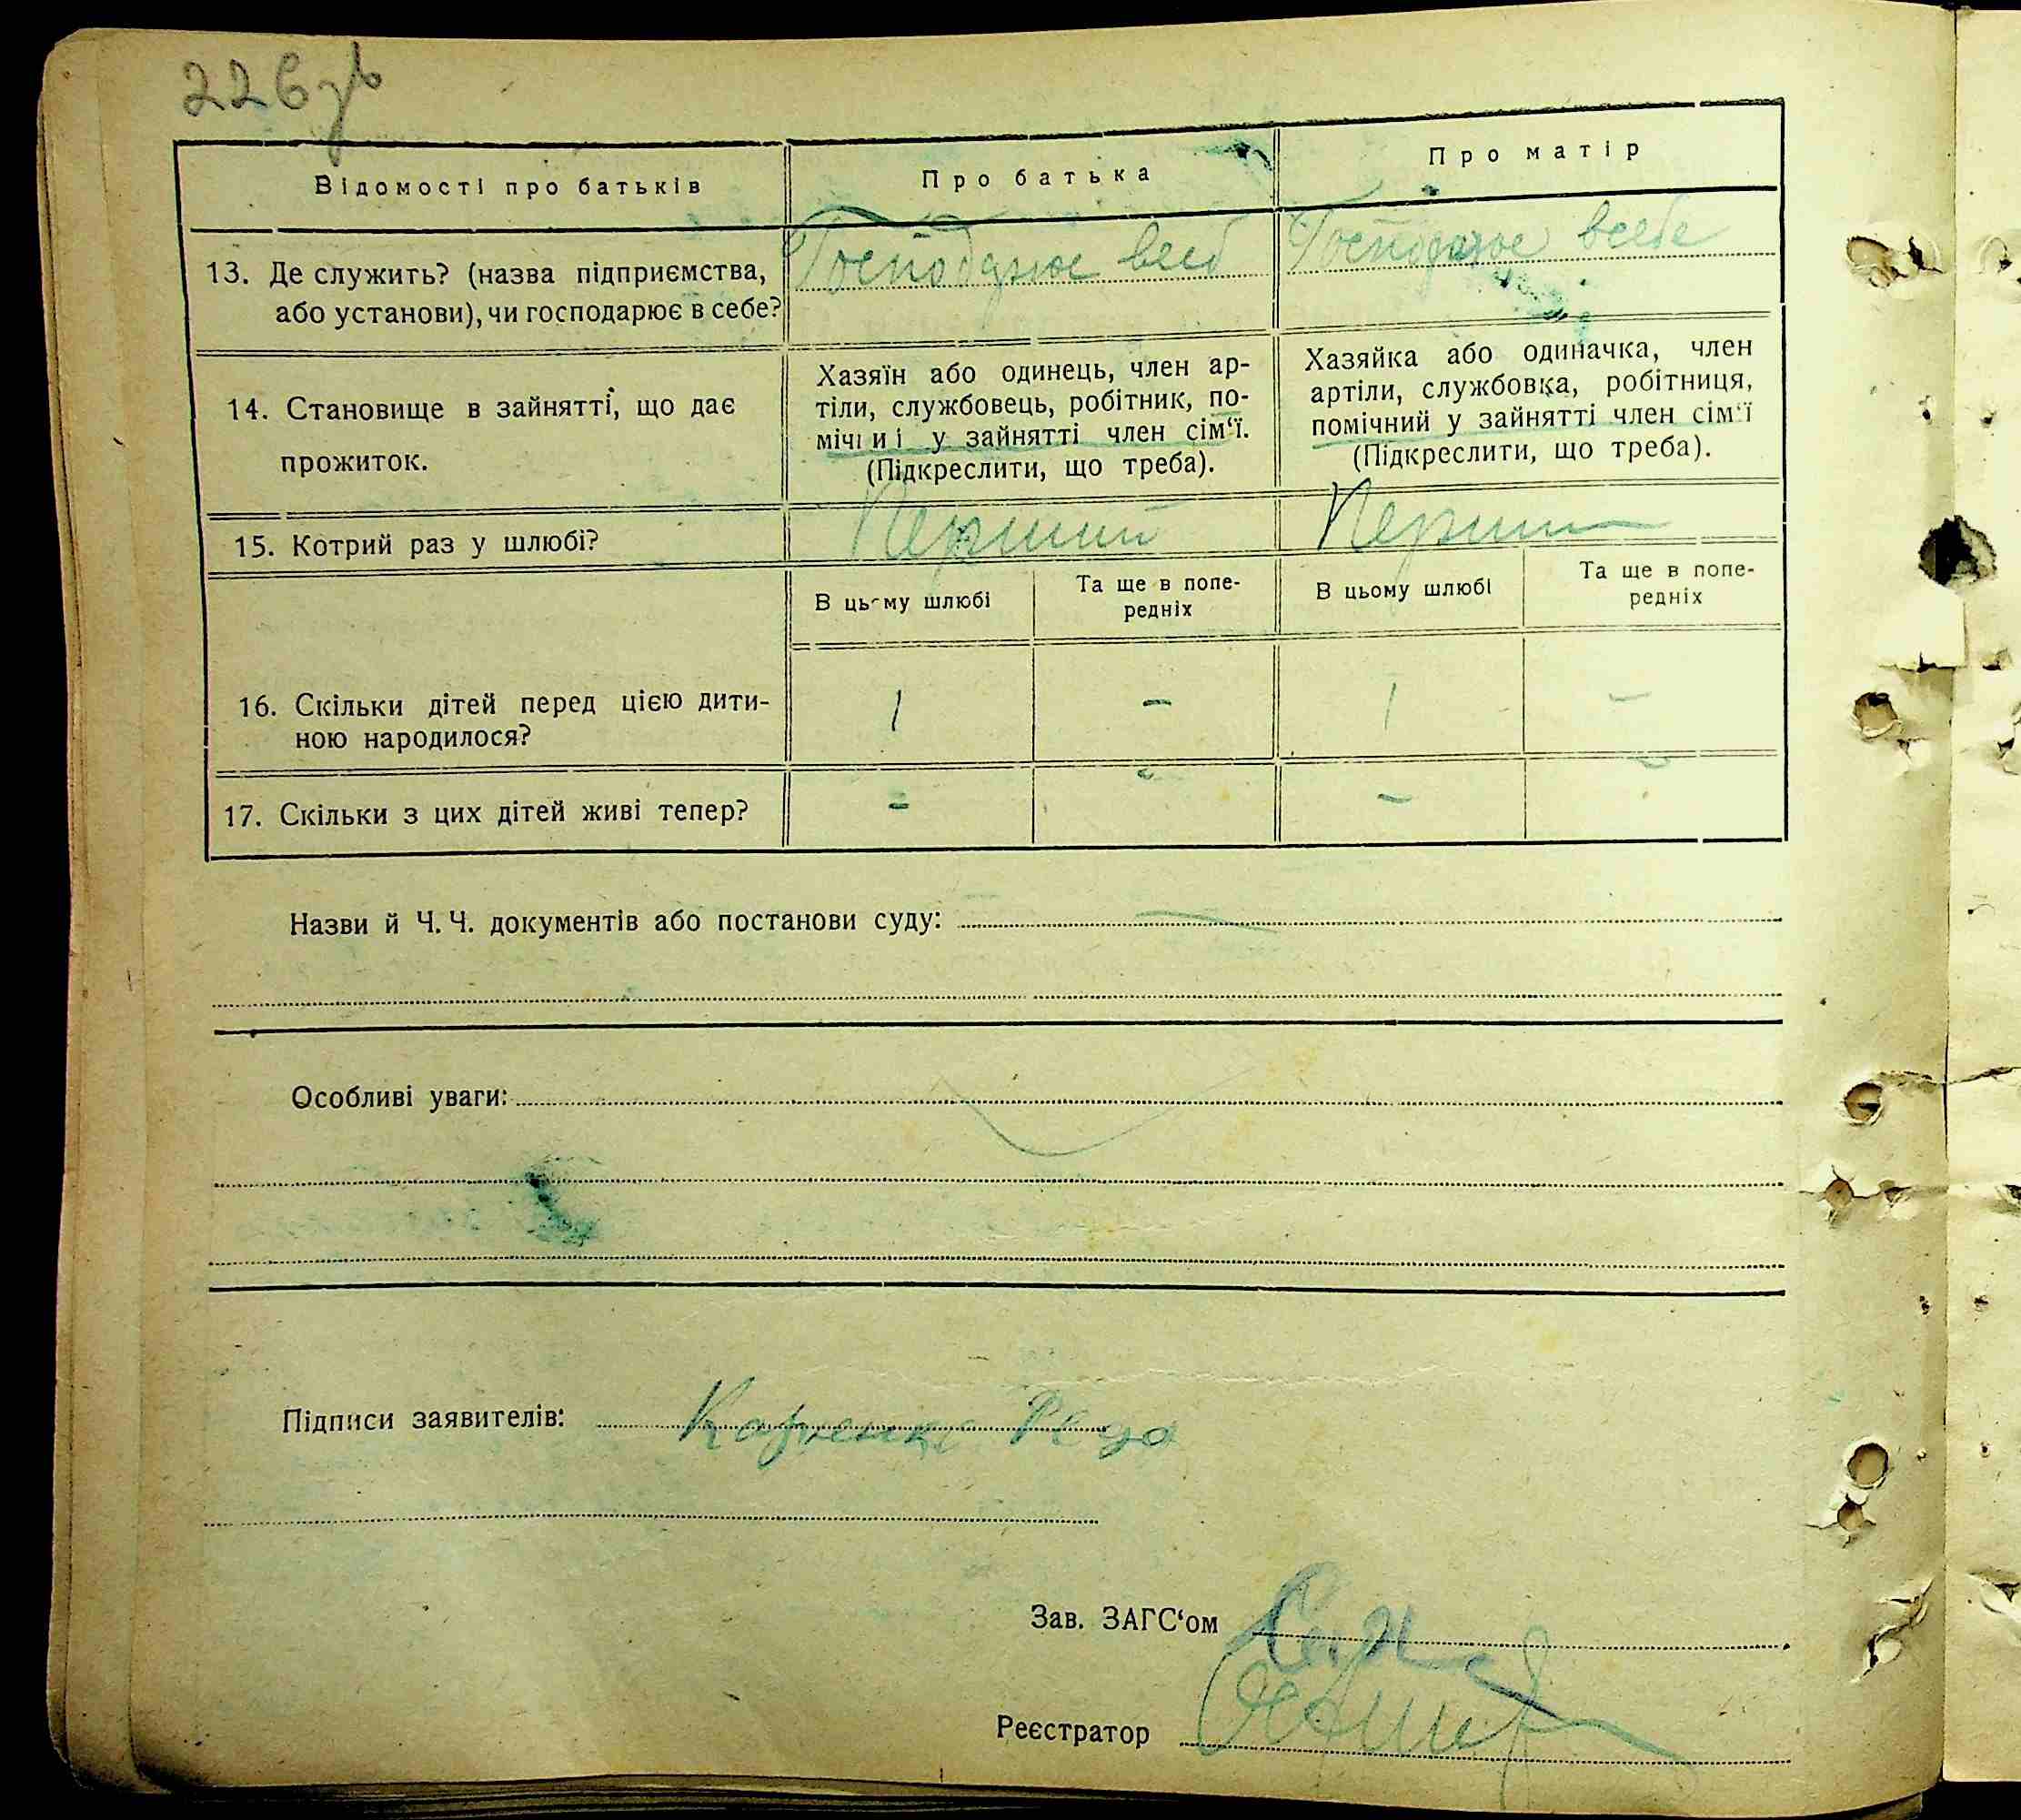 226зв
Відомості про батьків
Про батька
Про матір
13. Де служить? (назва підприємства,
або установи), чи господарює в себе?
Господарює всеб
Господарює всебе
14. Становище в зайнятті, що дає
прожиток.
Хазяїн або одинець, член ар-
тіли, службовець, робітник, по-
мічн и і у зайнятті член сім‘ї.
(Підкреслити, що треба).
Хазяйка або одиначка, член
артіли, службовка, робітниця,
помічний у зайнятті член сім‘ї
(Підкреслити, що треба).
15. Котрий раз у шлюбі?
Перший
Перший
В цьому шлюбі
Та ще в попе-
редніх
В цьому шлюбі
Та ще в попе-
редніх
16. Скільки дітей перед цією дити-
ною народилося?
1 - 1 -
17. Скільки з цих дітей живі тепер?
- - - -
Назви й Ч. Ч. документів або постанови суду: -
Особливі уваги:
Підписи заявителів:
Зав. ЗАГС‘ом
Реєстратор